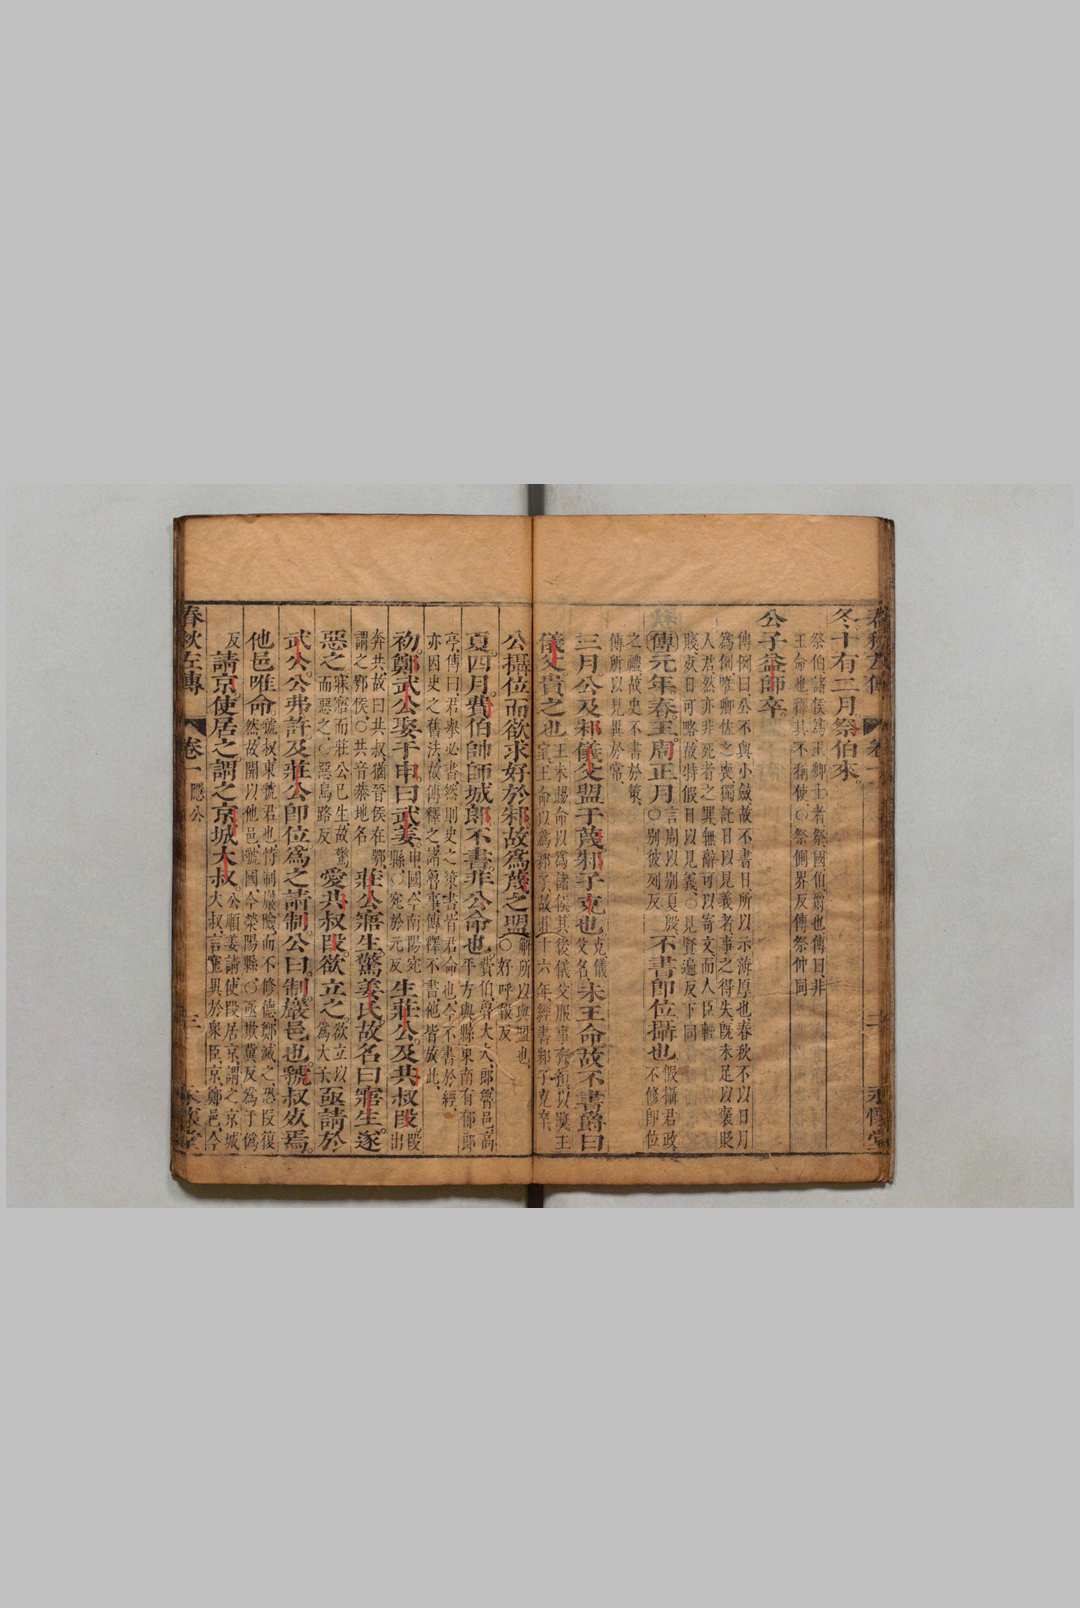 春秋左傳 卷一 三 永懷堂
冬十有二月祭伯來
祭伯諸侯爲王卿士者祭國伯爵也傳曰非
王命也釋其不稱使○祭側界反傳祭仲同
公子益師卒
傳例曰公不與小斂故不書日所以示薄厚也春秋不以日月
爲例唯卿佐之喪獨託日以見義者事之得失既未足以褒貶
人君然亦非死者之罪無辭可以寄文而人臣輕
賤死日可略故特假日以見義○見賢遍反下同
傳元年春王周正月言周以別夏殷○別彼列反不書即位攝也假攝君政不修即位
之禮故史不書於策
傳所以見異於常
三月公及邾儀父盟于蔑邾子克也克儀父名未王命故不書爵曰
儀父貴之也王未賜命以爲諸侯其後儀父服事齊桓以獎王室王命以爲邾子故莊十六年經書邾子克卒
公攝位而欲求好於邾故爲蔑之盟解所以與盟也○好呼報反
夏四月費伯帥師城郎不書非公命也費伯魯大夫郎魯邑高平方與縣東南有郁郎
亭傳曰君舉必書然則史之策書皆君命也今不書於經
亦因史之舊法故傳釋之諸魯事傳釋不書他皆放此
初鄭武公娶于申曰武姜申國今南陽宛縣○宛於元反生莊公及共叔段段出
奔共故曰共叔猶晉侯在鄂謂之鄂侯○共音恭地名莊公寤生驚姜氏故名曰寤生遂
惡之寐寤而莊公已生故驚而惡之○惡烏路反愛共叔段欲立之欲立以爲大子亟請於
武公公弗許及莊公即位爲之請制公曰制巖邑也虢叔死焉
他邑唯命虢叔東虢君也恃制巖險而不修德鄭滅之恐段復然故開以他邑虢國今滎陽縣○亟欺冀反爲于僞
反請京使居之謂之京城大叔公順姜請使段居京謂之京城大叔言寵異於衆臣京鄭邑今
春秋左傳 卷一 隱公 三 永懷堂